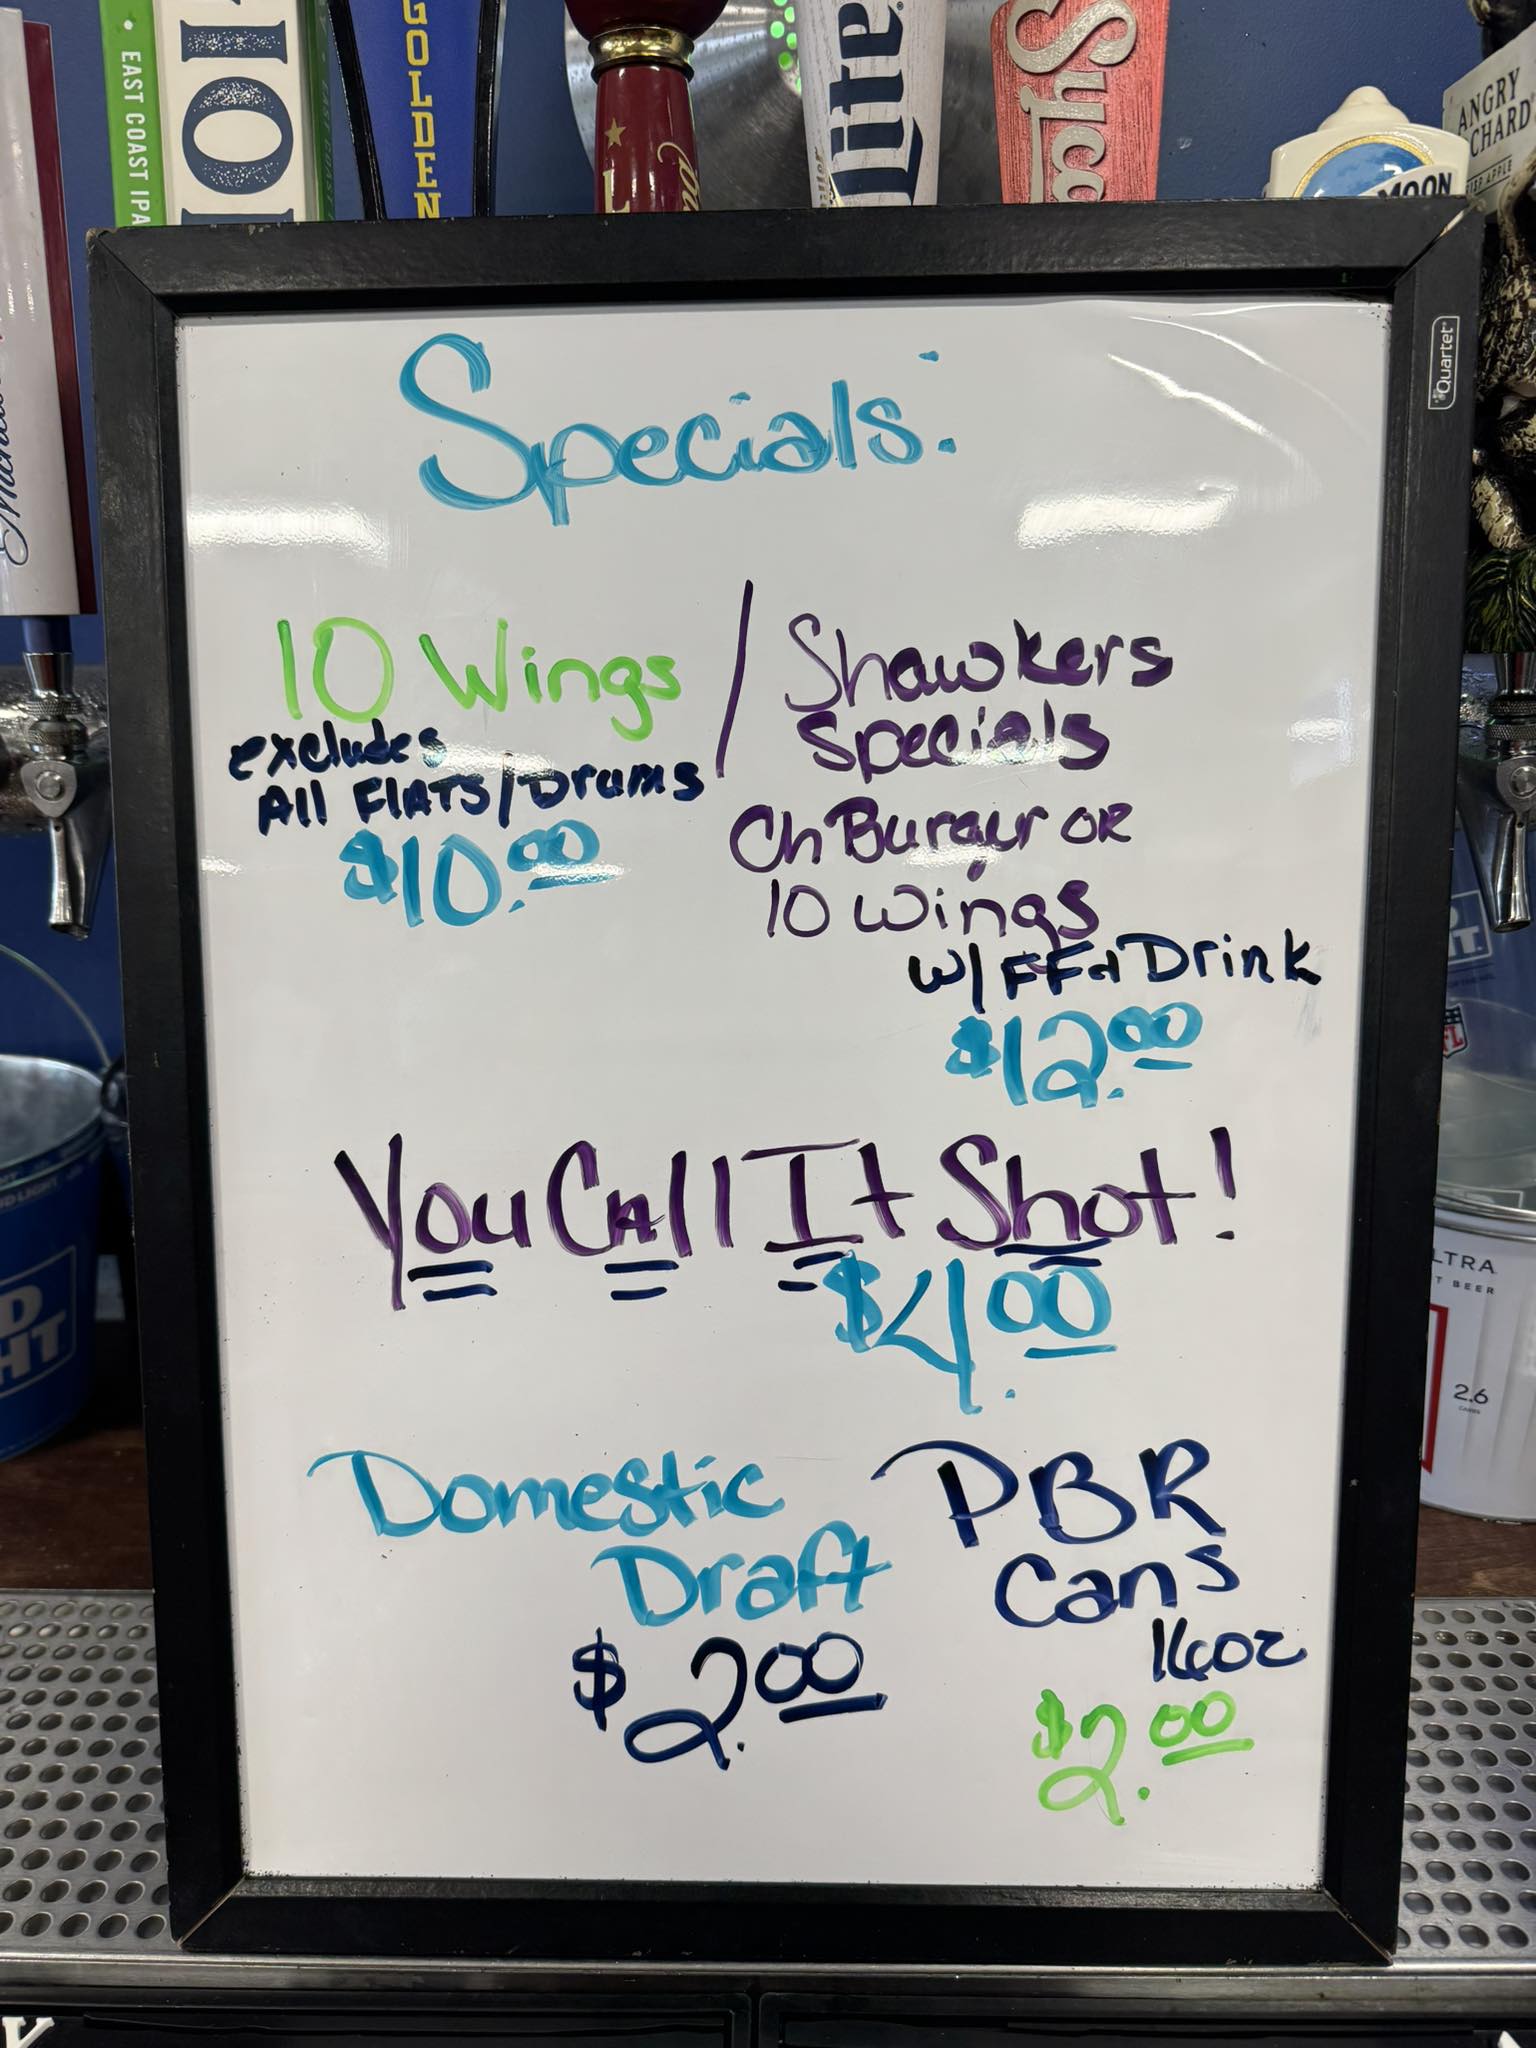 EAST COAST IPA
GOLDEN
L
Lite
Syca
MOON
ANGRY
CHARD
Quartet
Specials:
10 Wings / Shawkers
Specials
excludes
All FlATS/Drums
$10.00
ChBurger OR
10 Wings
w/FF+Drink
$12.00
You CAll It Shot!
$4.00
Domestic
Draft
$2.00
PBR
Cans
16oz
$2.00
LTRA
T BEER
2.6